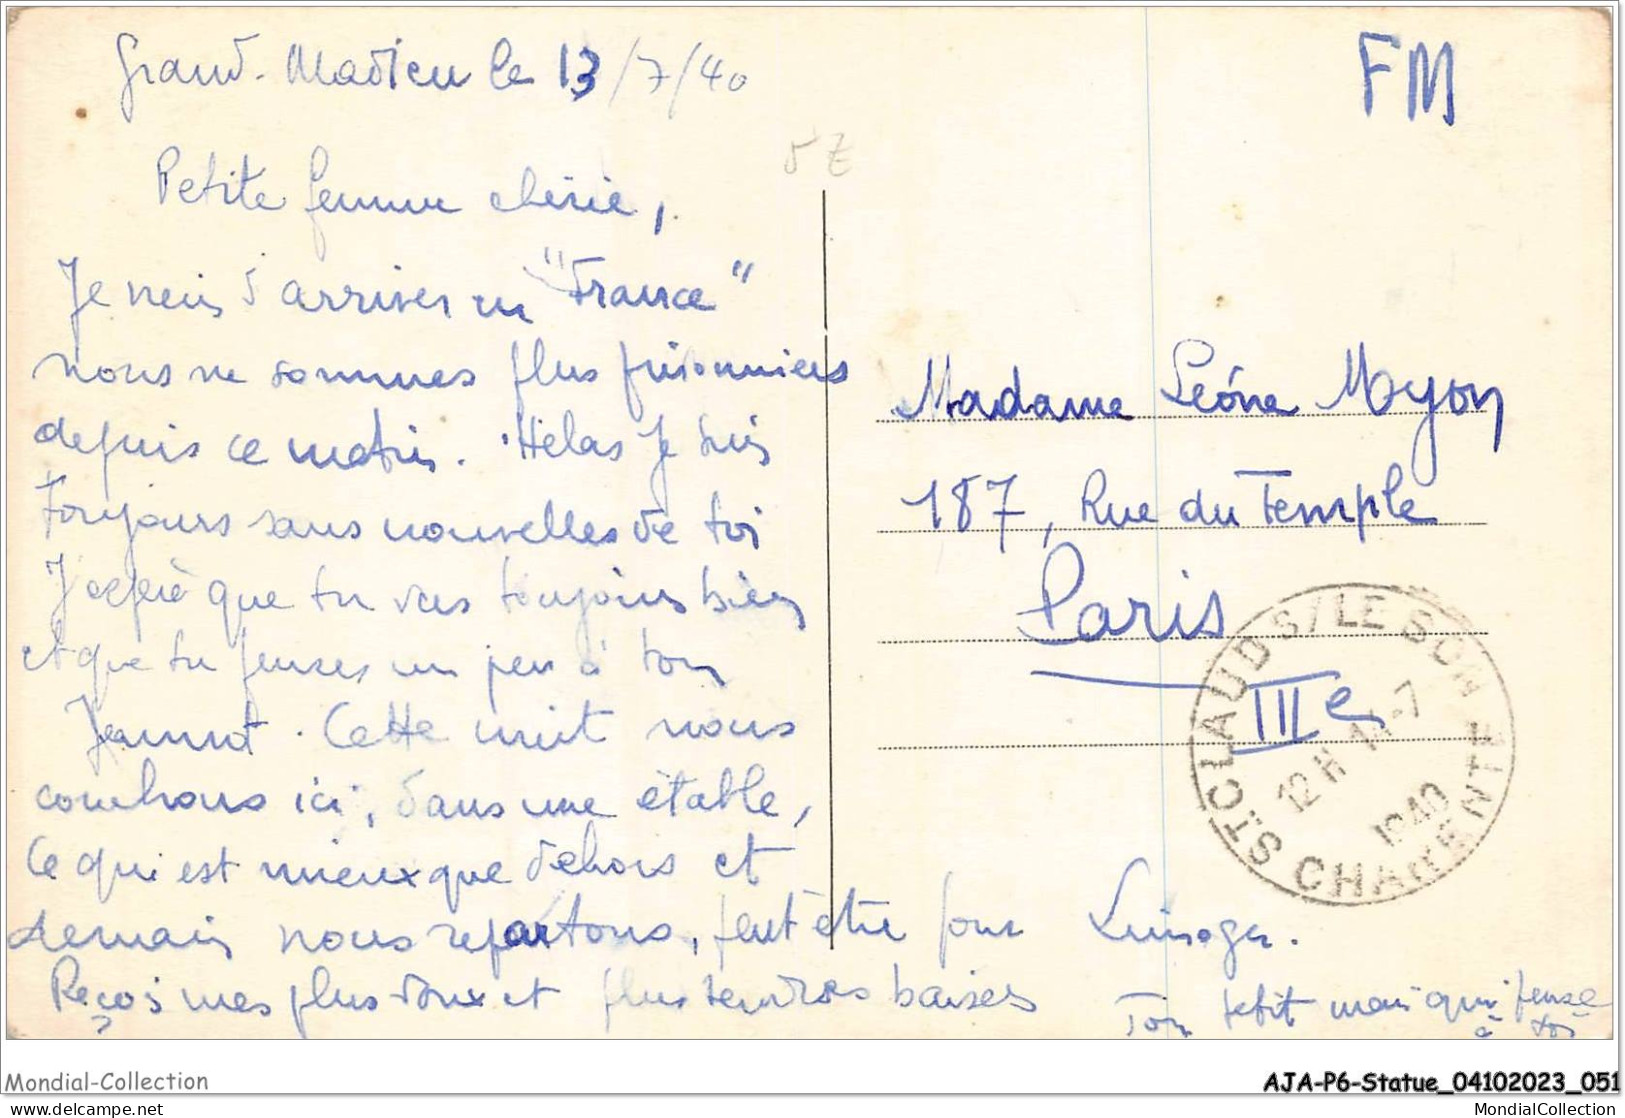 Grand-Madieu le 13/7/40
FM
Petite femme chérie,
Je viens d'arriver en "France"
nous ne sommes plus prisonniers
depuis ce matin. Hélas je suis
toujours sans nouvelles de toi
J'espère que tu vas toujours bien
et que tu penses un peu à ton
Jeannot. Cette nuit nous
couchons ici, dans une étable,
ce qui est mieux que dehors et
demain nous repartons, peut être pour Limoges.
Reçois mes plus doux et plus tendres baisers
Ton petit mari qui pense
à toi
Madame Léone Myon
187, Rue du Temple
Paris
IIIe
ST CLAUD S/LE SON
12H 14-7
1940
CHARENTE
Mondial-Collection
AJA-P6-Statue_04102023_051
delcampe.net
MondialCollection